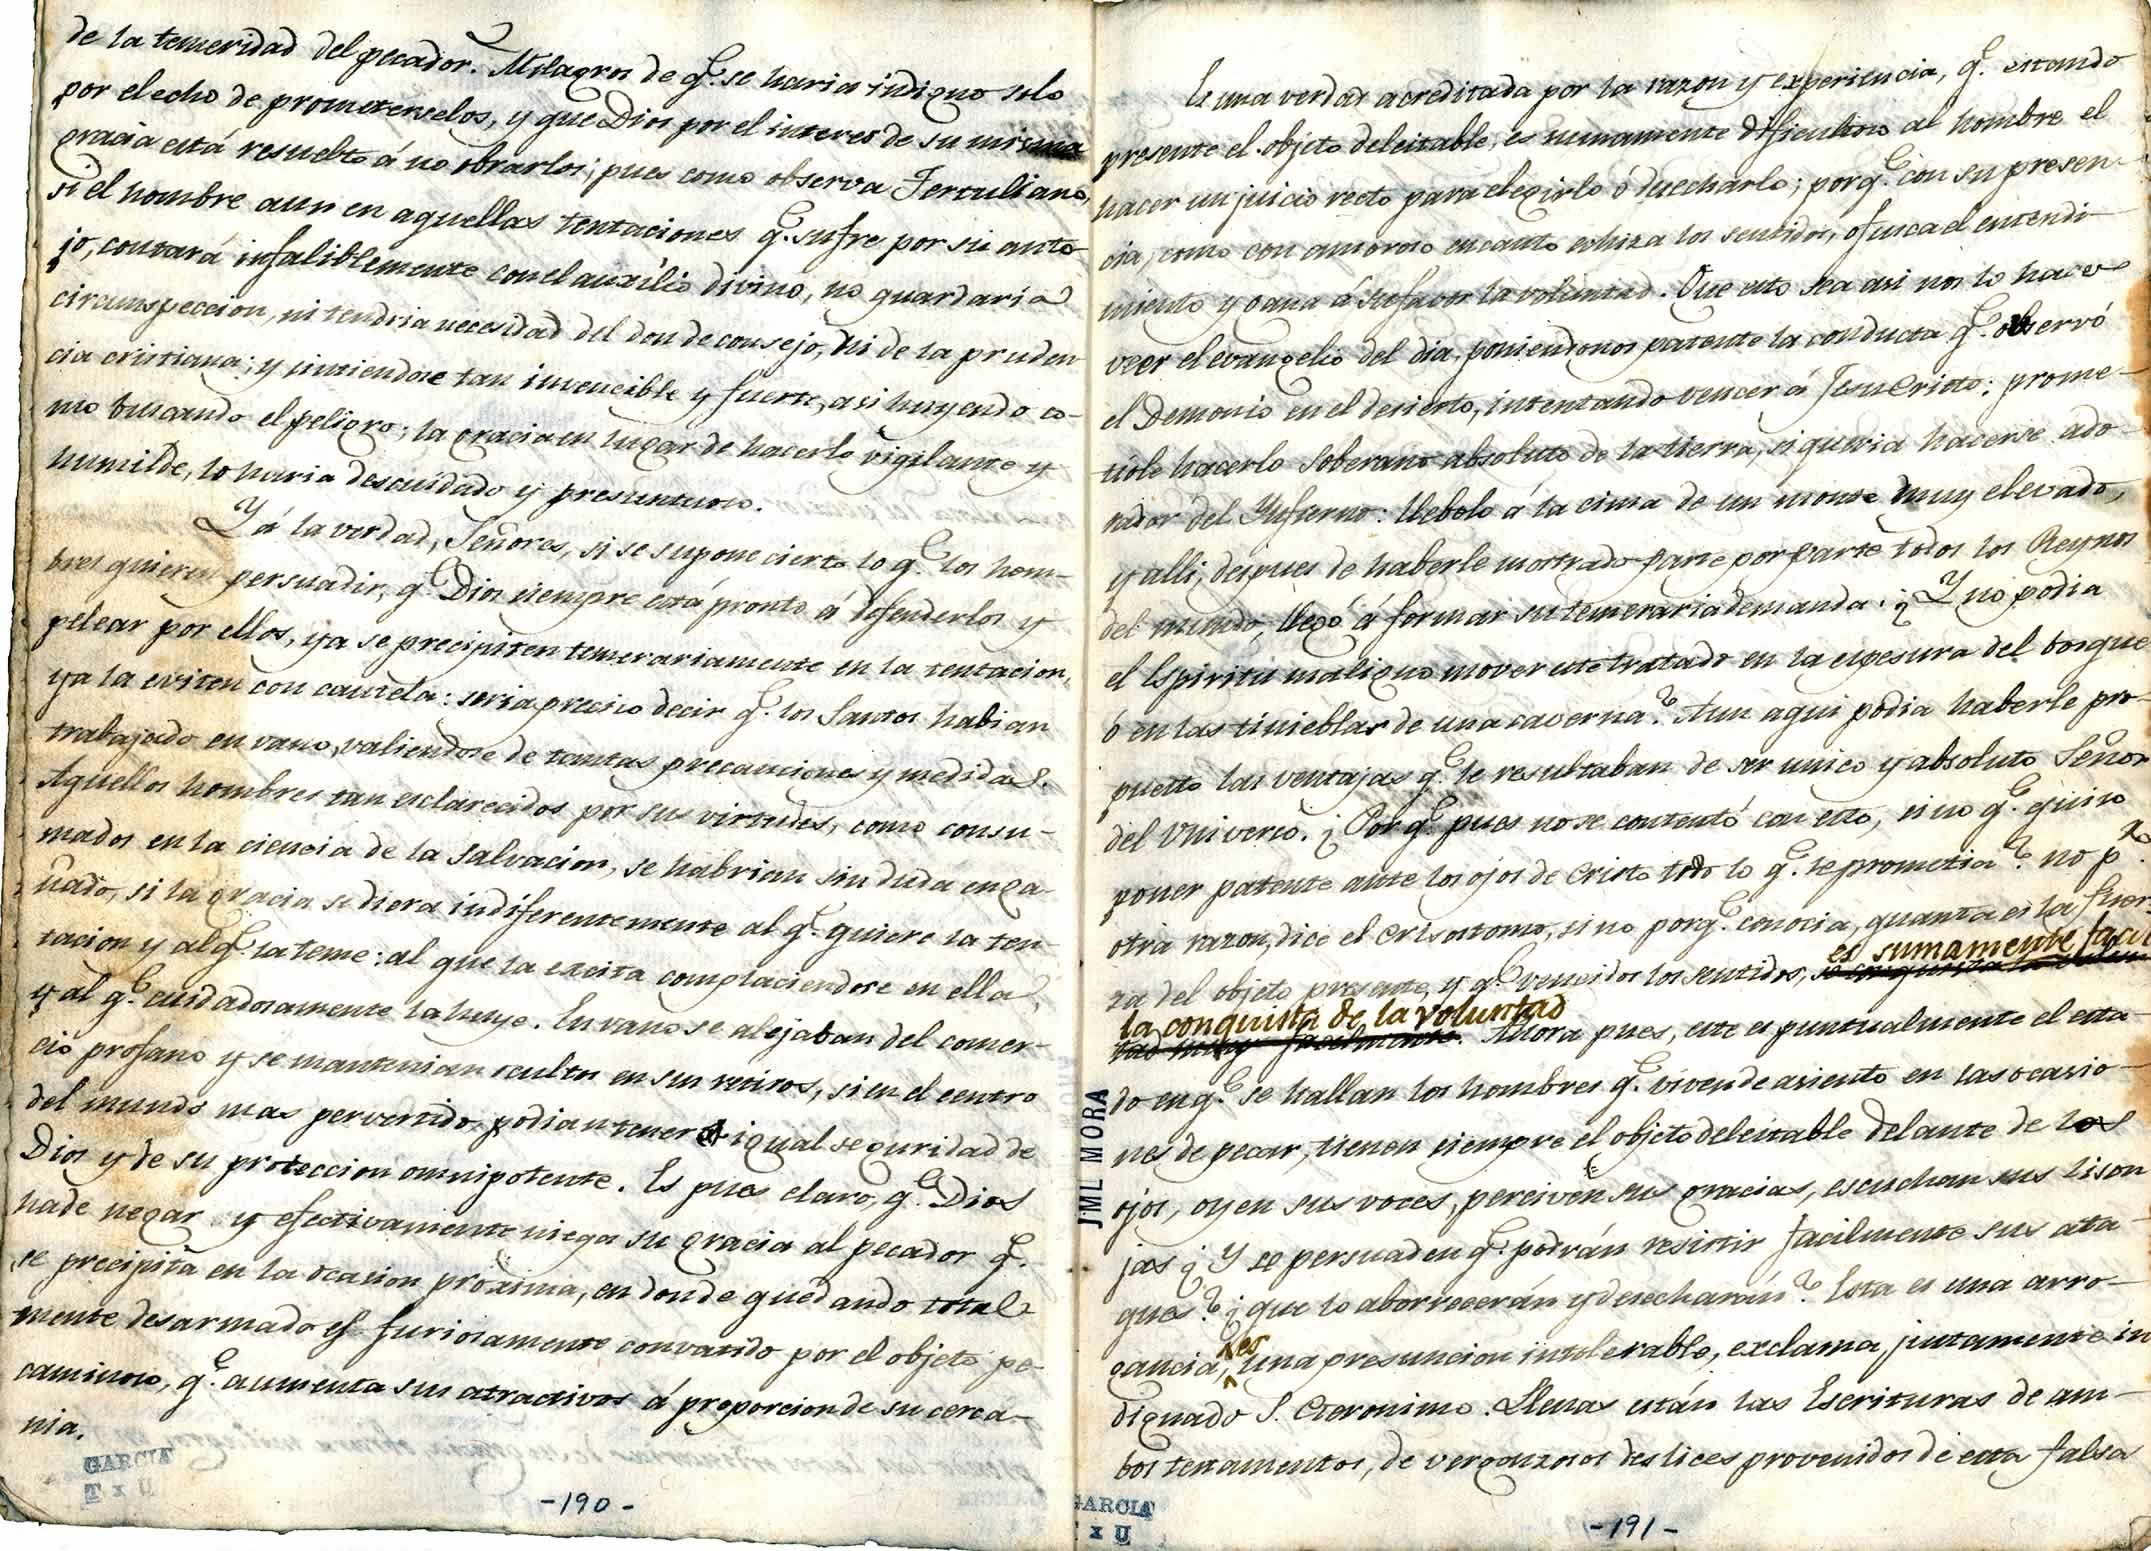 de la temeridad del pecador. Milagros de q.e se haria indigno solo
por el echo de prometerselos, y que Dios por el interes de su misma
gracia está resuelto á no obrarlos; pues como observa Tertuliano,
si el hombre aun en aquellas tentaciones q.e sufre por su anto-
jo, contará infaliblemente con el auxilio divino, no guardaria
circunspeccion, ni tendria necesidad del don de consejo, ni de la pruden
cia cristiana; y sintiendose tan invencible y fuerte, asi huyendo co-
mo buscando el peligro; la gracia en lugar de hacerlo vigilante y
humilde, lo haria descuidado y presuntuoso.
Y á la verdad, Señores, si se supone cierto lo q.e los hom-
bres quieren persuadir, q.e Dios siempre está pronto á defenderlos y
pelear por ellos, ya se precipiten temerariamente en la tentacion,
ya la eviten con cautela: seria preciso decir q.e los Santos habian
trabajado en vano, valiendose de tantas precauciones y medidas.
Aquellos hombres tan esclarecidos por sus virtudes, como consu-
mados en la ciencia de la salvacion, se habrian sin duda enga-
ñado, si la gracia se diera indiferentemente al q.e quiere la ten-
tacion y al q.e la teme: al que la excita complaciendose en ella,
y al q.e cuidadosamente la huye. En vano se alejaban del comer-
cio profano y se mantenian ocultos en sus retiros, si en el centro
del mundo mas pervertido, podian tener igual seguridad de
Dios y de su proteccion omnipotente. Es pues claro, q.e Dios
ha de negar y efectivamente niega su gracia al pecador q.e
se precipita en la ocasion proxima, en donde quedando total-
mente desarmado es furiosamente convatido por el objeto pe-
caminoso, q.e aumenta sus atractivos á proporcion de su cerca-
nia.
GARCIA
T x U
-190-
Es una verdad acreditada por la razon y experiencia, q.e estando
presente el objeto deleitable, es sumamente dificultoso al hombre el
hacer un juicio recto para elegirlo ó desecharlo; porq.e con su presen-
cia, como con amoroso encanto echiza los sentidos, ofusca el entendi-
miento y gana á su favor la voluntad. Que esto sea asi nos lo hace
veer el evangelio del dia, poniendonos patente la conducta q.e observó
el Demonio en el desierto, intentando vencer á JesuCristo: prome-
tiole hacerlo Soberano absoluto de la tierra, si queria hacerse ado-
rador del Ynfierno: llebolo á la cima de un monte muy elevado,
y alli, despues de haberle mostrado parte por parte todos los Reynos
del mundo, llegó á formar su temeraria demanda. ¿Y no podia
el Espiritu maligno mover este tratado en la espesura del bosque
ó en las tinieblas de una caverna? Aun aqui podia haberle pro-
puesto las ventajas q.e le resultaban de ser unico y absoluto Señor
del Universo. ¿Por q.e pues no se contentó con esto, si no q.e quiso
poner patente ante los ojos de Cristo todo lo q.e le prometia? no p.r
otra razon, dice el Crisostomo, si no porq.e conocia, quanta es la fuer-
es sumamente facil
za del objeto presente, y q.e vencidos los sentidos,
la conquista de la voluntad
Ahora pues, este es puntualmente el esta-
do en q.e se hallan los hombres q.e viven de asiento en las ocasio-
nes de pecar, tienen siempre el objeto deleitable delante de los
ojos, oyen sus voces, perciven sus gracias, escuchan sus lison
jas ¿Y se persuaden q.e podrán resistir facilmente sus ata-
ques? ¿que lo aborrecerán y desecharán? Esta es una arro-
gancia, es una presuncion intolerable, exclama, justamente in
dignado S. Geronimo. Llenas están las Escrituras de am-
bos testamentos, de vergonzosos deslices provenidos de esta falsa
JML MORA
GARCIA
x U
-191-